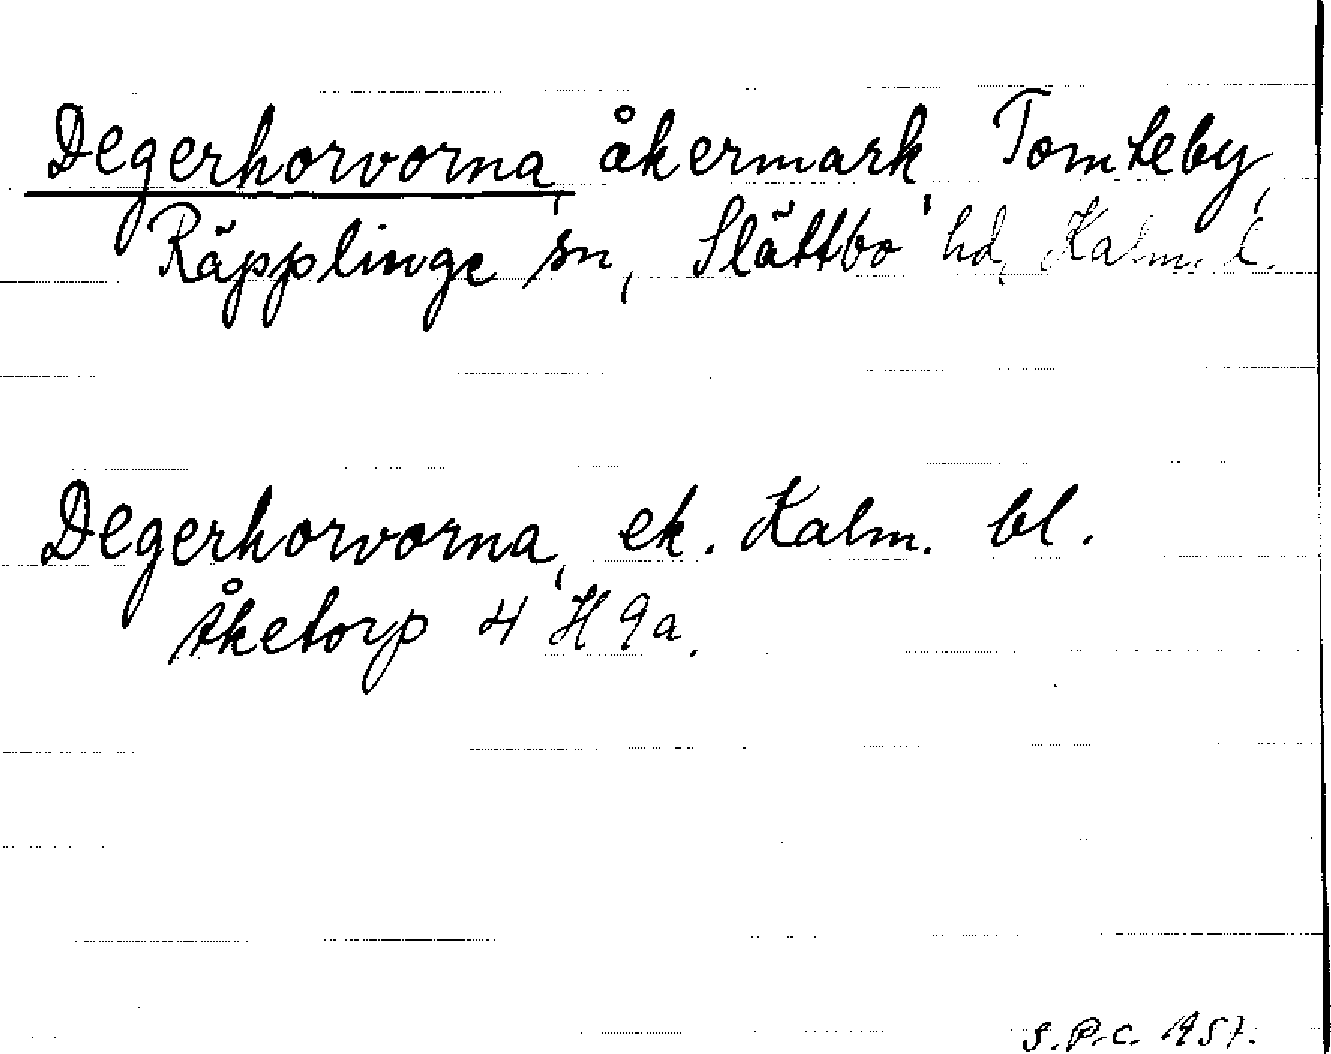 Degerhorvorna, åkermark, Tomteby,
Räpplinge sn, Slättbo hd, Kalm. l.
Degerhorvorna, ek. Kalm. bl.
Åketorp 4 H 9a.
S.P.C. 1957.